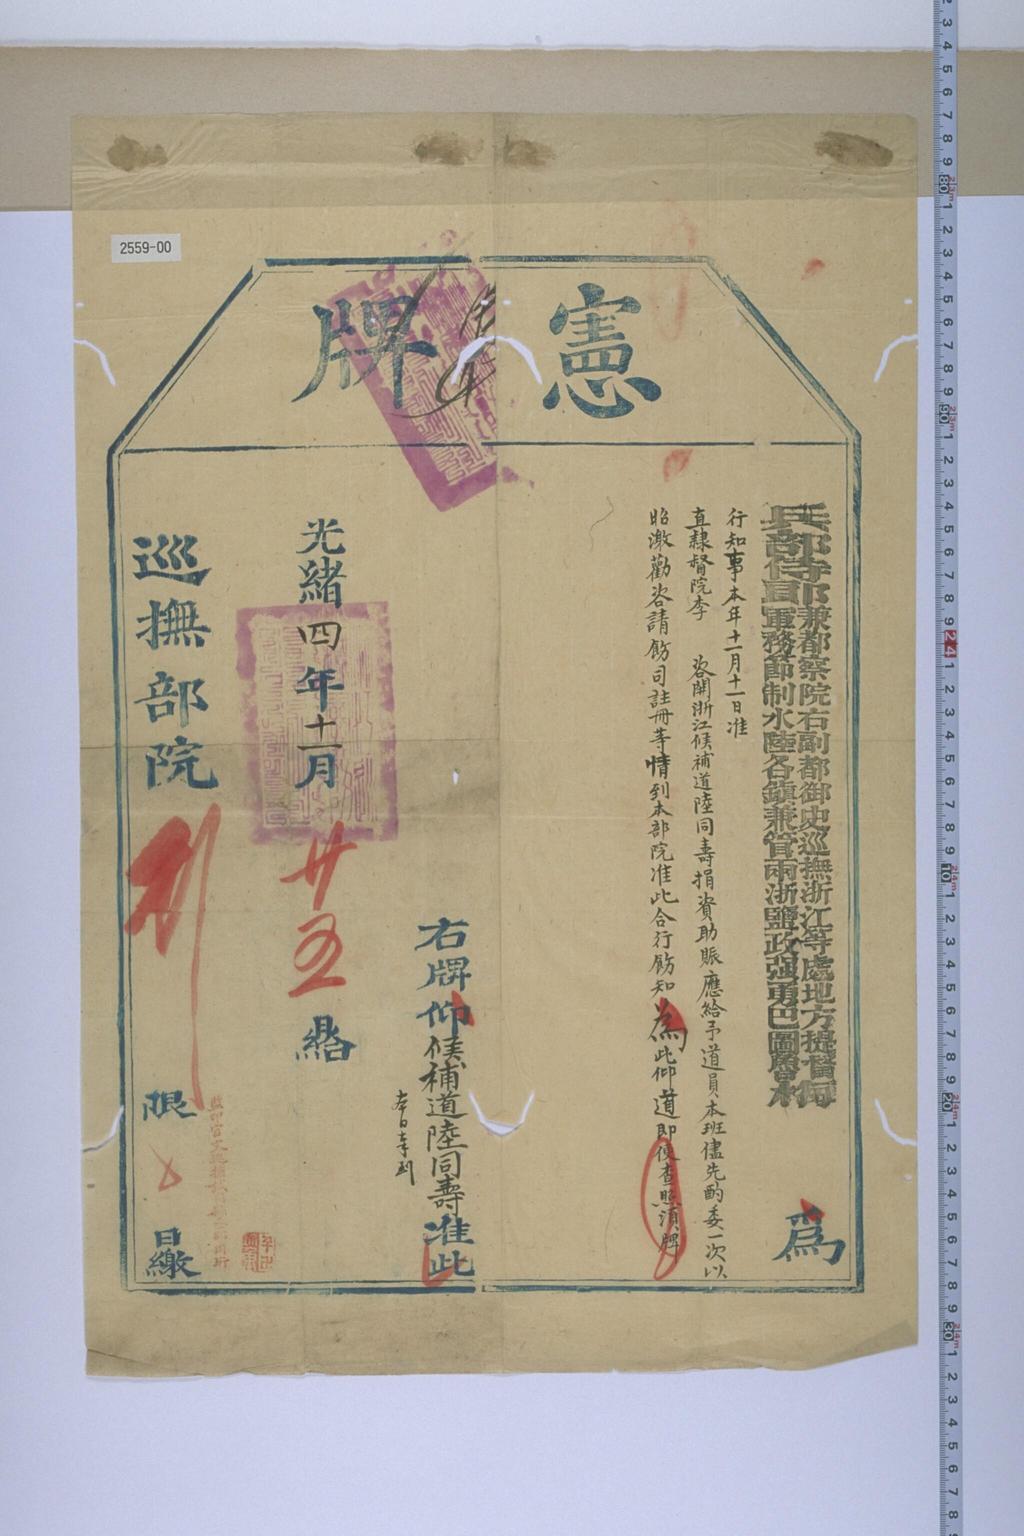 憲牌
兵部侍郎兼都察院右副都御史巡撫浙江等處地方提督
軍務節制水陸各鎮兼管兩浙鹽政強勇巴圖魯梅
為
行知事本年十一月十一日准
直隸督院李 咨開浙江候補道陸同壽捐資助賑應給予道員本班儘先酌委一次以
昭激勸咨請飭司註冊等情到本部院准此合行飭知為此仰道即便查照須牌
右牌仰候補道陸同壽准此
本日奉到
光緒四年十一月
廿五
巡撫部院
限
日繳
2559-00